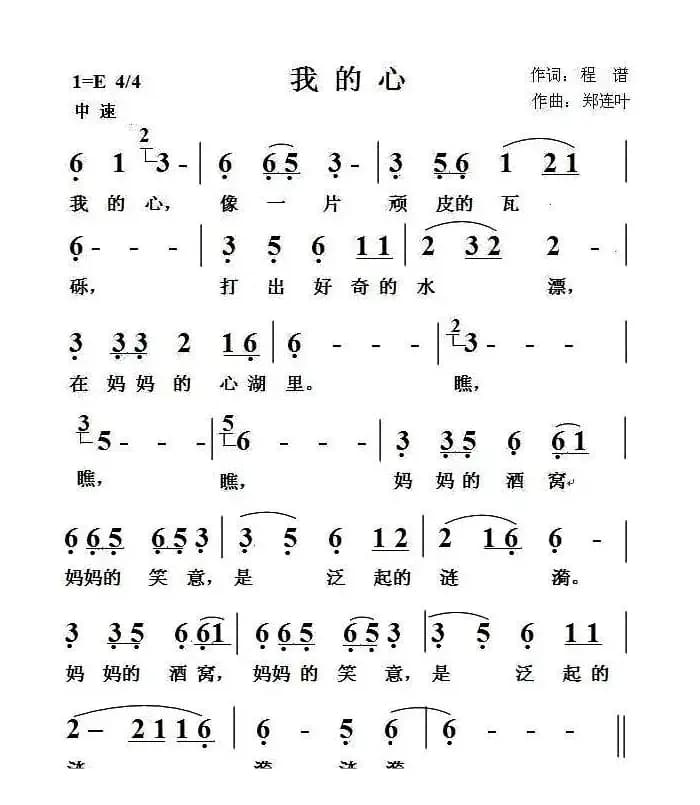 我的心
1=E 4/4
作词：程 谱
中速
作曲：郑连叶
2
6 1 3 - | 6 6 5 3 - | 3 5 6 1 2 1 |
我的心，像一片顽皮的瓦
6 - - - | 3 5 6 1 1 | 2 3 2 2 - |
砾，打出好奇的水漂，
2
3 3 3 2 1 6 | 6 - - - | 3 - - - |
在妈妈的心湖里。瞧，
3 5
5 - - - | 6 - - - | 3 3 5 6 6 1 |
瞧，瞧，妈妈的酒窝
6 6 5 6 5 3 | 3 5 6 1 2 | 2 1 6 6 - |
妈妈的笑意，是泛起的涟漪。
3 3 5 6 6 1 | 6 6 5 6 5 3 | 3 5 6 1 1 |
妈妈的酒窝，妈妈的笑意，是泛起的
2 - 2 1 1 6 | 6 - 5 6 | 6 - - - ‖